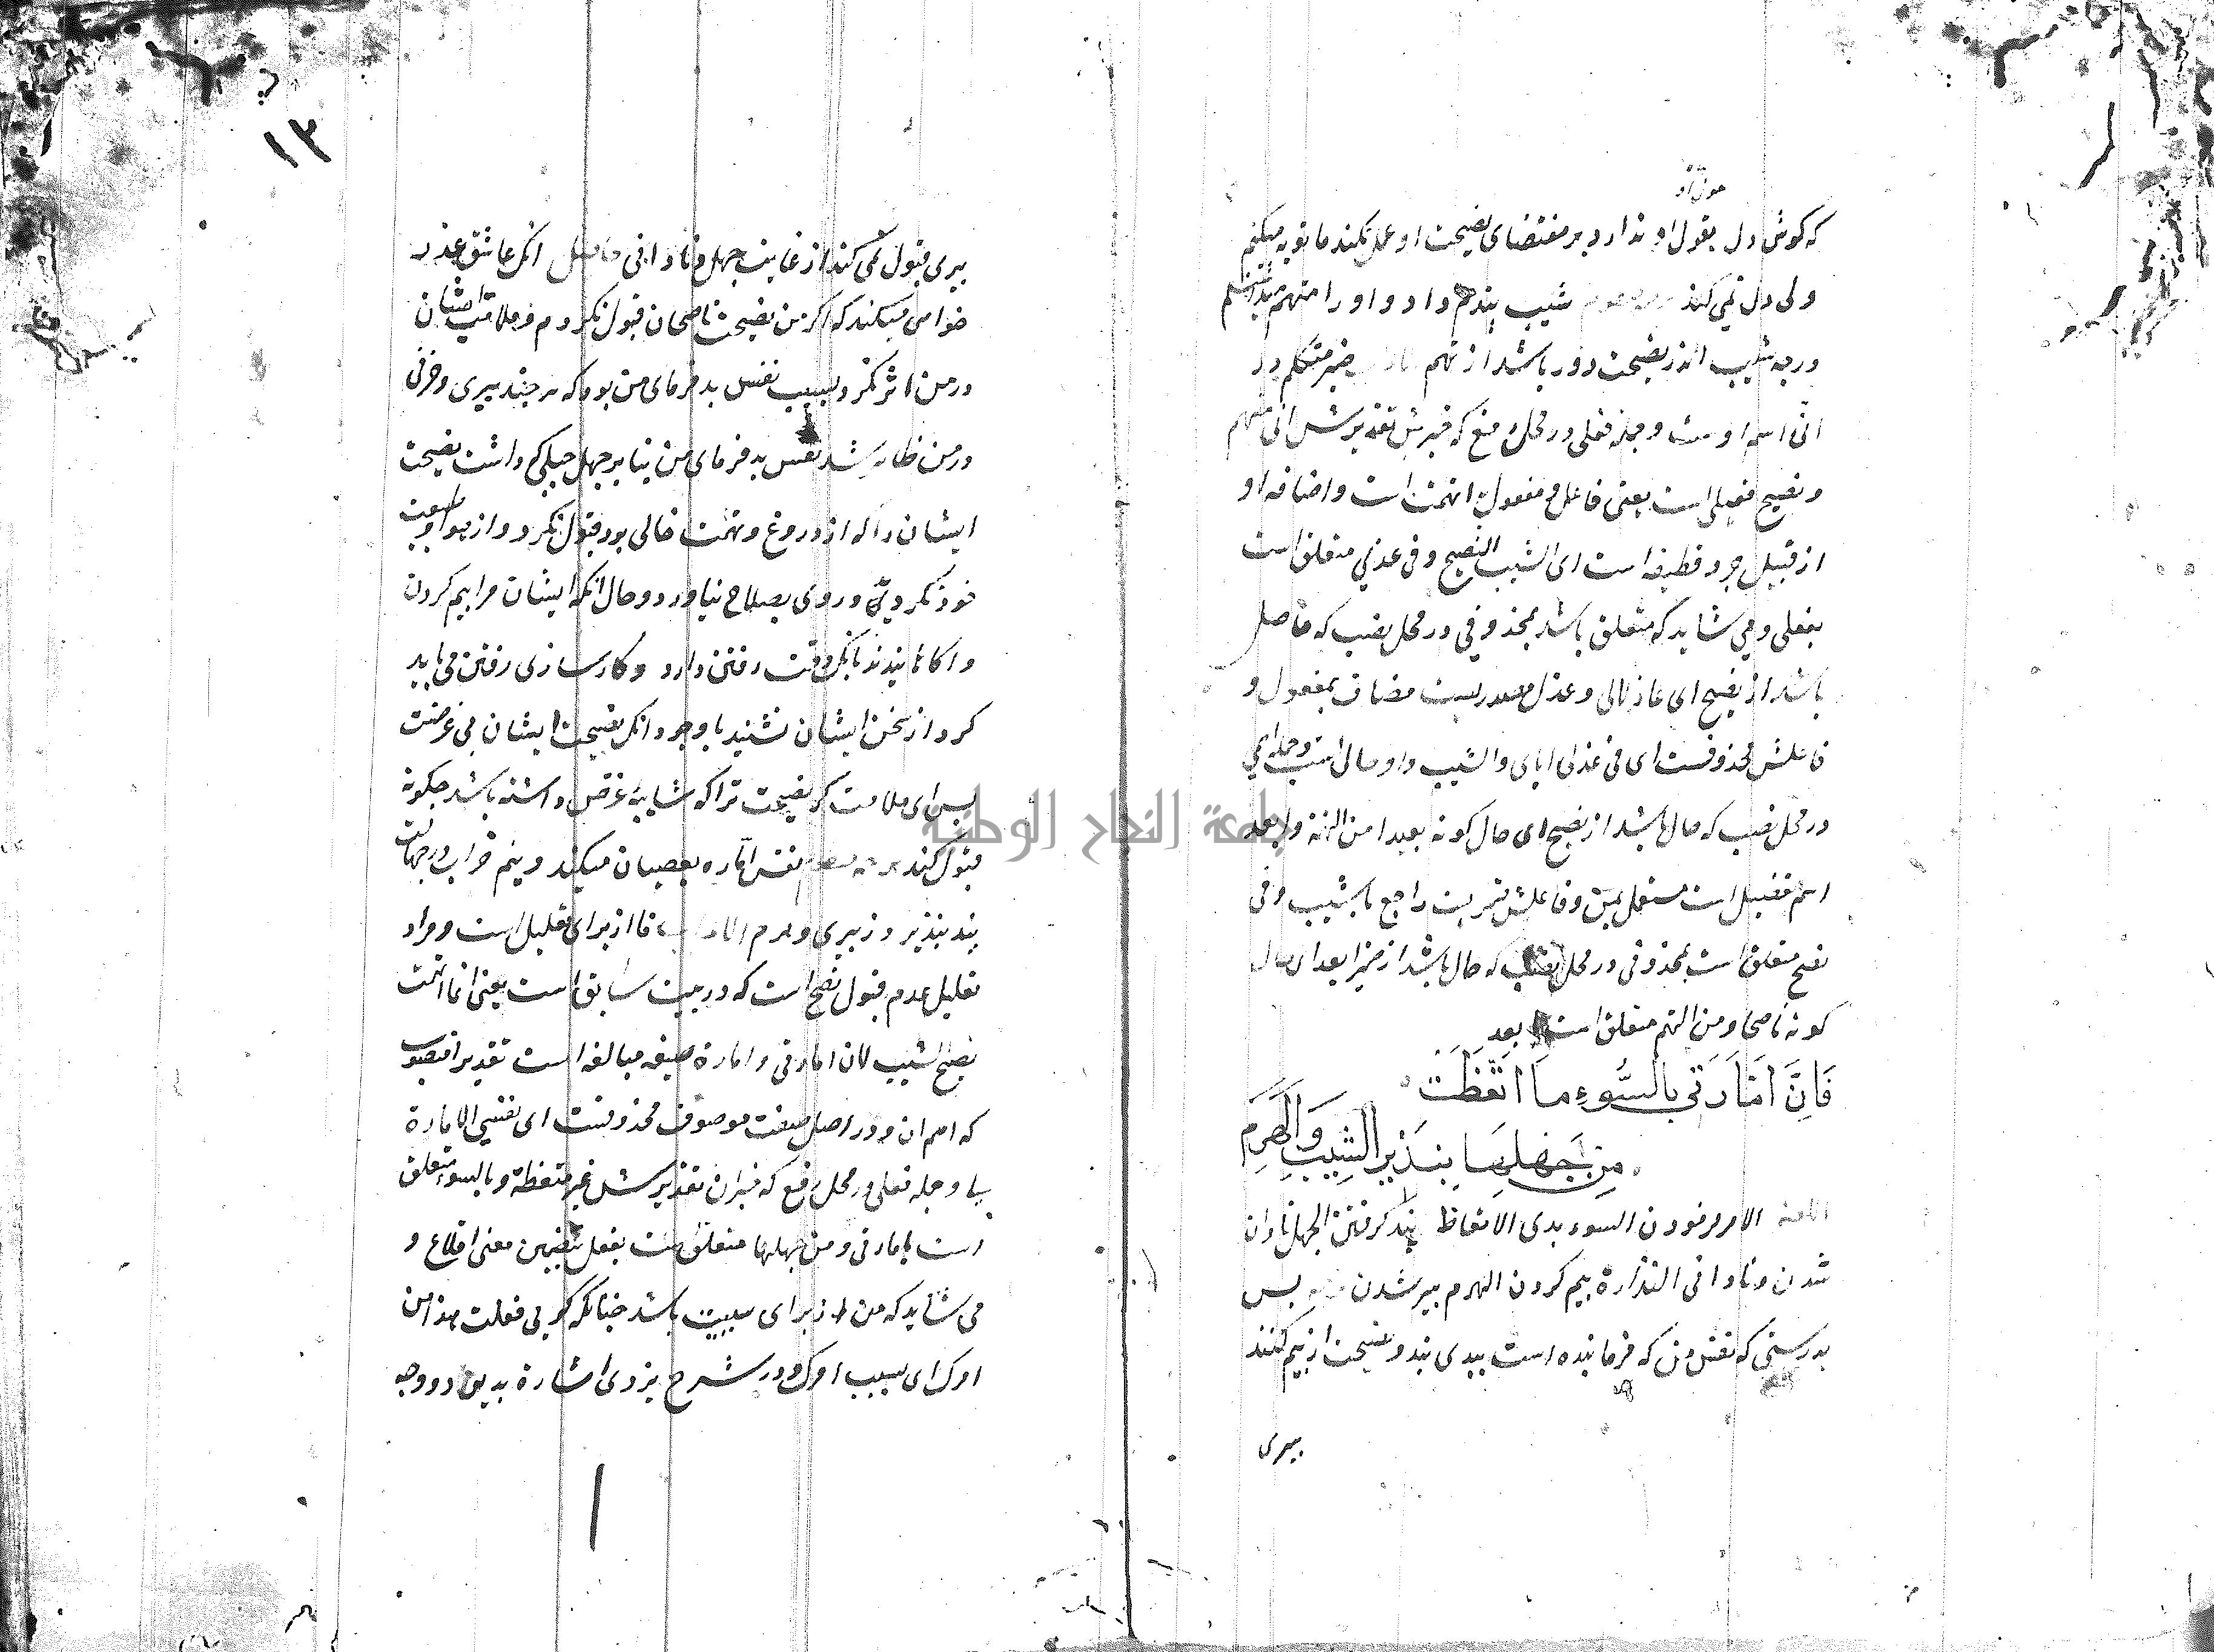 که کوش دل بقول او ندارد و بر مقتضای نصیحت او عمل نکند ما توبه میکنم
ولی دل نمی کند شیب پندم داد و او را متهم
ورجه شیب اندر نصیحت دور باشد از تهم ضمیر متکلم در
انی اسم اوست و جمله فعلی در محل رفع که خبرش تقدیرش انی متهم
و نصیح فعیلی است یعنی فاعل و مفعول اتهمت است و اضافه او
از قبیل جرد قطیفه است ای الشیب النصیح و فی عذلی متعلق است
بفعلی و می شاید که متعلق باشد بمحذوفی در محل نصب که حاصل
باشد از نصیح ای عاذلا لی و عذل مصدریست مضاف بمفعول و
فاعلش محذوفست ای فی عذلی ایای والشیب واو حال است و جمله اسمی
در محل نصب که حال باشد از نصیح ای حال کونه بعیدا من التهمة و ابعد
اسم تفضیل است مستعمل بمن و فاعلش ضمیریست راجع با شیب و فی
نصح متعلق است بمحذوفی در محل نصب که حال باشد از ضمیر ابعد ای حال
کونه ناصحا و من التهم متعلق است بابعد
فَاِنَّ اَمَّارَتی بِالسُّوءِ مَا اتَّعَظَتْ
مِن جَهْلِهَا بِنَذِیرِ الشَّیبِ وَالْهَرَمِ
اللغة الامر فرمودن السوء بدی الاتعاظ پند کرفتن الجهل نادان
شدن و نادانی النذارة بیم کردن الهرم پیر شدن بس
بدرستی که نفس من که فرماینده است ببدی پند و نصیحت از بیم کنند
بیری
١٣
بیری قبول نمی کند از غایت جهل و نادانی حاصل انک عاشق عذر
خواهی میکند که اکر من نصیحت ناصحان قبول نکردم و ملامت ایشان
در من اثر نکرد بسبب نفس بد فرمای من بود که هر چند بیری و خرفی
در من ظاهر شد نفس بد فرمای من بنا بر جهل جبلی که داشت نصیحت
ایشان را که از دروغ و تهمت خالی بود قبول نکرد و از هوا و طبیعت
خود نکردید و روی بصلاح نیاورد و حال انکه ایشان مرا بیم کردن
و اکاه نمایندند بانک وقت رفتن دارد و کارسازی رفتن می باید
کرد از سخن ایشان نشنید با وجود انک نصیحت ایشان بی غرضست
بس ای ملامت کر نصیحت ترا که شایبه غرض داشته باشد جکونه
قبول کند نفس اماره بعصیان میکند وینم خراب از جهالت
پند نپذیرد ز پیری و هرم فا از برای تعلیل است و مراد
تعلیل عدم قبول نصح است که در بیت سابق است یعنی انما اتهمت
نصح الشیب لان امارتی و امارة صیغه مبالغه است تقدیرا منصوب
که اسم ان و در اصل صفت موصوف محذوفست ای نفسی الامارة
و جمله فعلی در محل رفع که خبر ان تقدیرش غیر متعظة و بالسوء متعلق
است بامارتی و من جهلها متعلق است بفعل بتضمین معنی اقلاع و
می شاید که من از برای سببیت باشد جنانکه کویی فعلت هذا من
امرک ای بسبب امرک و در شرح یزدی اشارة بدین دو وجه
جامعة النجاح الوطنية